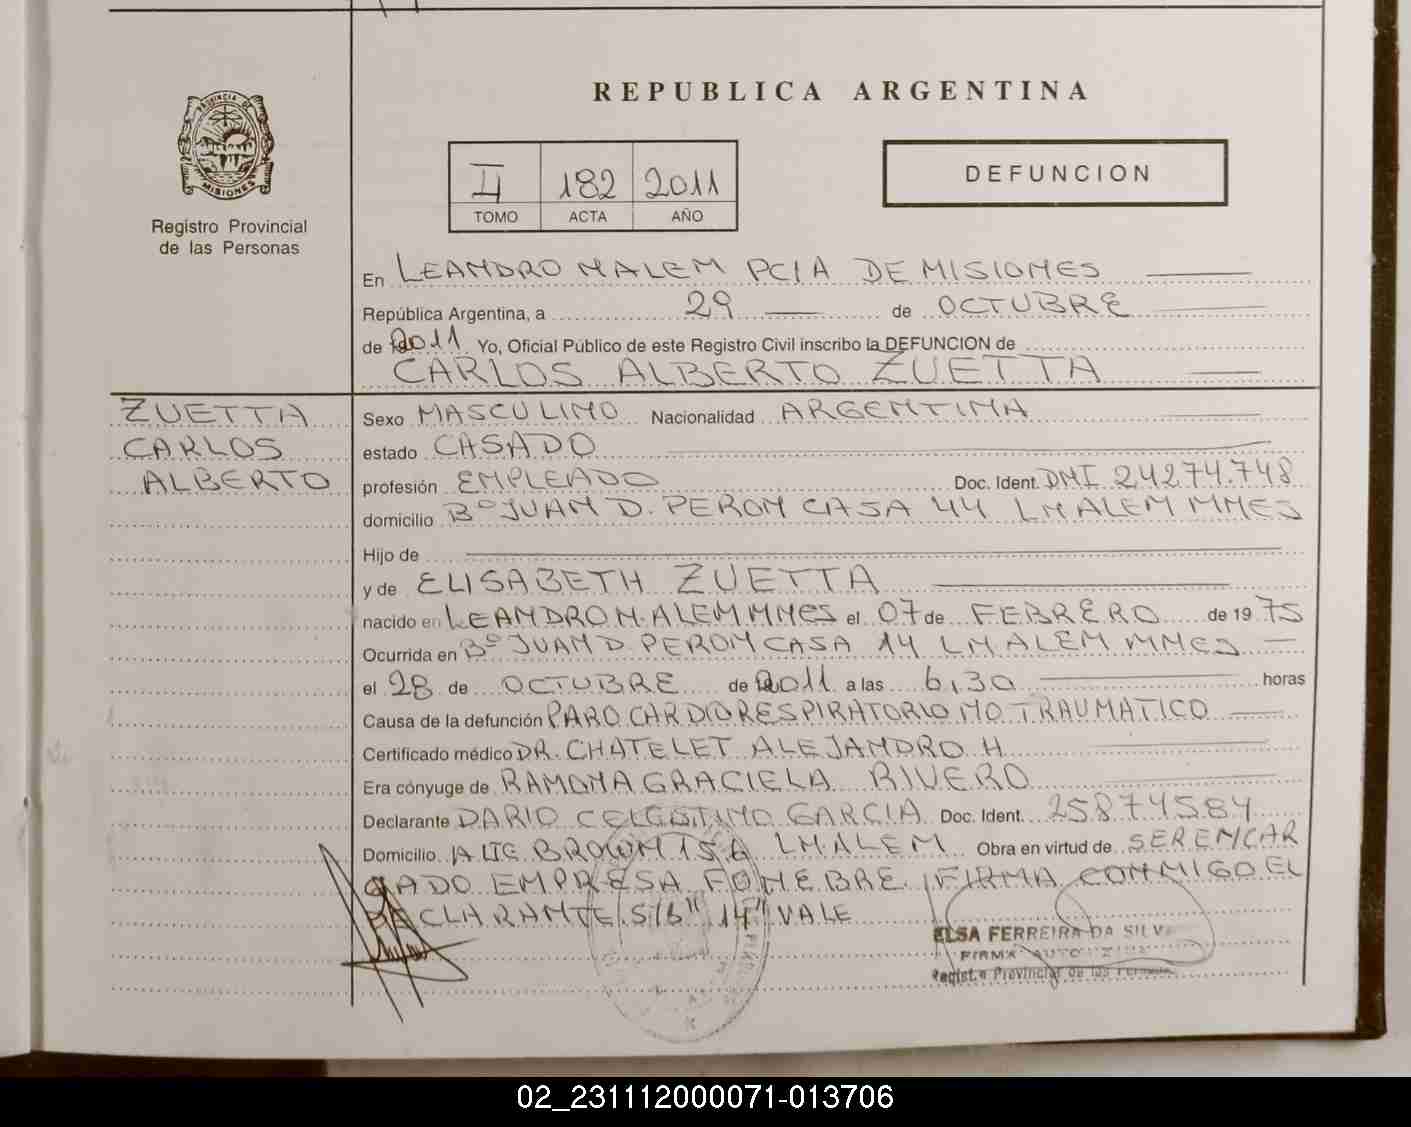 REPUBLICA ARGENTINA
PROVINCIA DE
MISIONES
Registro Provincial
de las Personas
II 182 2011
TOMO ACTA AÑO
DEFUNCION
En LEANDRO N ALEM PCIA DE MISIONES
República Argentina, a 29 de OCTUBRE
de 2011 Yo, Oficial Público de este Registro Civil inscribo la DEFUNCION de
CARLOS ALBERTO ZUETTA
ZUETTA
CARLOS
ALBERTO
Sexo MASCULINO Nacionalidad ARGENTINA
estado CASADO
profesión EMPLEADO Doc. Ident. DNI 24274.748
domicilio Bº JUAN D. PERON CASA 44 L N ALEM MNES
Hijo de
y de ELISABETH ZUETTA
nacido en LEANDRO N. ALEM MNES el 07 de FEBRERO de 1975
Ocurrida en Bº JUAN D. PERON CASA 14 L N ALEM MNES
el 28 de OCTUBRE de 2011 a las 6,30 horas
Causa de la defunción PARO CARDIORESPIRATORIO NO TRAUMATICO
Certificado médico DR. CHATELET ALEJANDRO H
Era cónyuge de RAMONA GRACIELA RIVERO
Declarante DARIO CELESTINO GARCIA Doc. Ident. 25874584
Domicilio ALTE BROWN 154 L N ALEM Obra en virtud de SER ENCAR
GADO EMPRESA FUNEBRE. FIRMA CONMIGO EL
DECLARANTE. S/b "14" VALE
ELSA FERREIRA DA SILV
FIRMA AUTO
Registro Provincial de las Personas
02_231112000071-013706